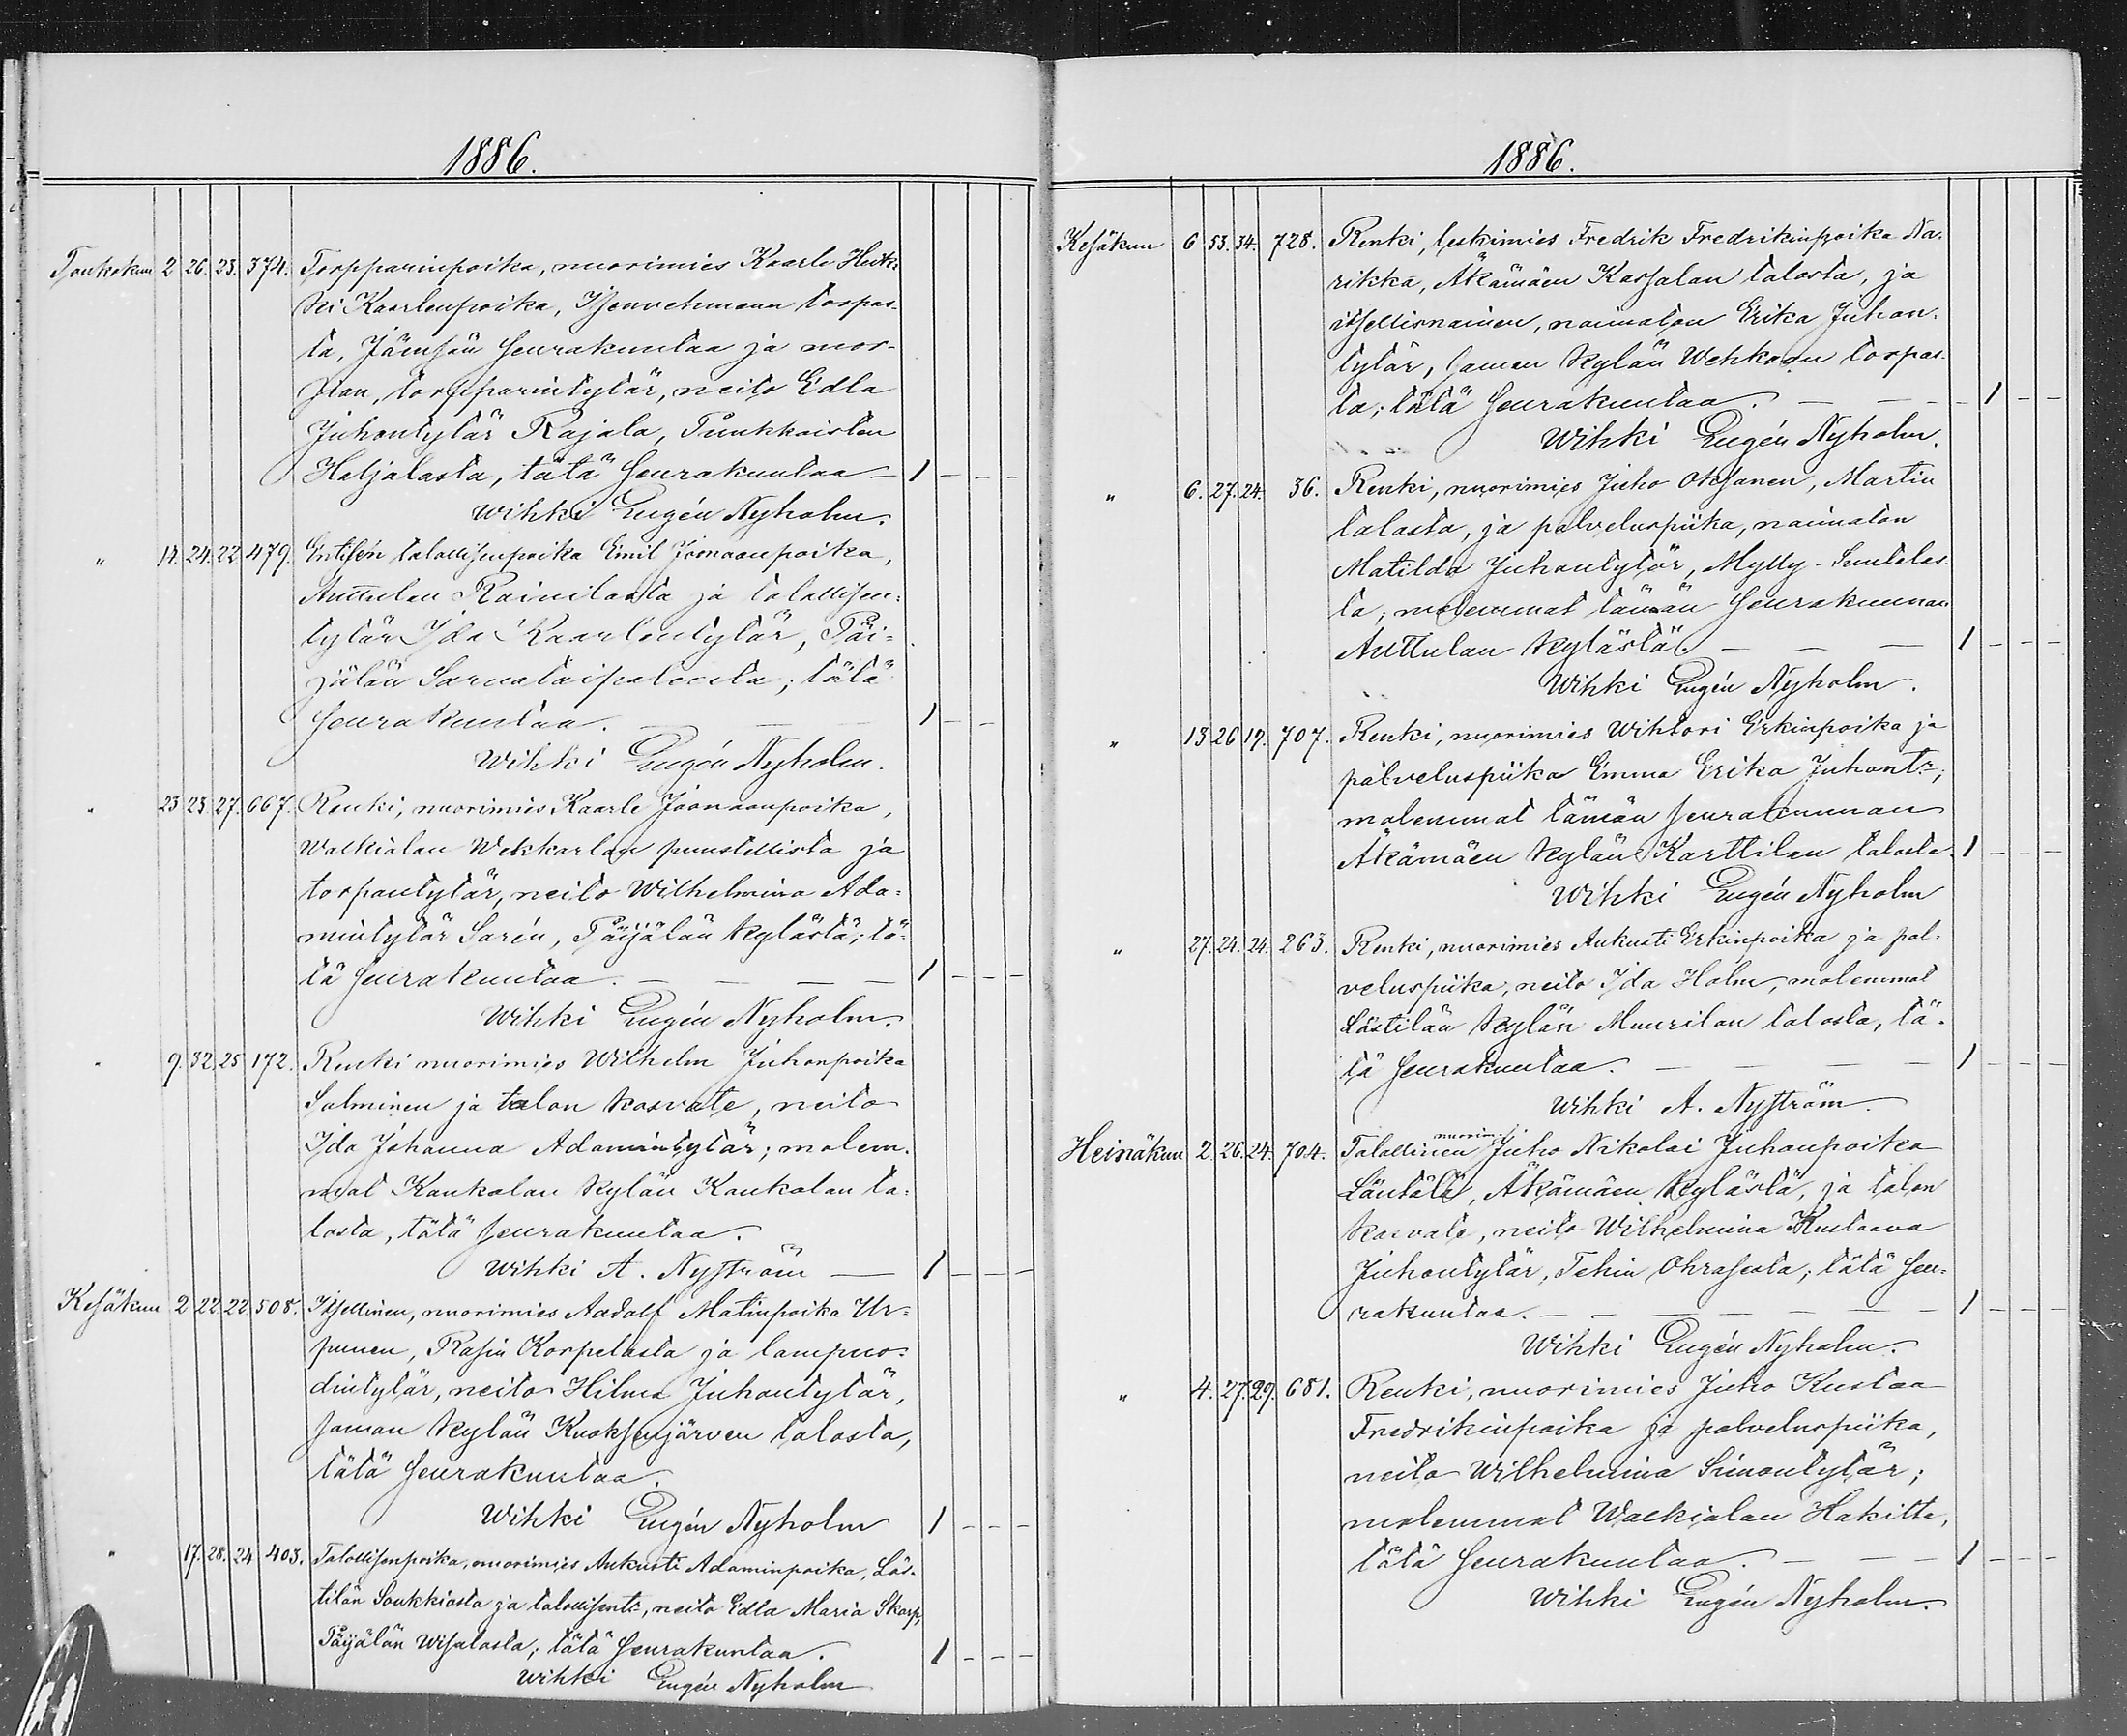 1886.
Toukokuu 2 26. 23. 374. Torpparinpoika, nuorimies Kaarle Heik-
ki Kaarlenpoika, torpas-
ta, Jämsän seurakuntaa ja mor-
sian, torpparintytär, neito Edla
Juhontytär Rajala, Puukkoisten
Haljalasta, tätä seurakuntaa — 1 - - -
Wihki Eugén Nyholm.
" 14. 24. 22. 479. Entisen talollisenpoika Emil Joonaanpoika,
Auttulan Rainilasta ja talollisen-
tytär Ida Kaarlentytär, Päi-
jälän tätä
seurakuntaa. — — — 1 - -
Wihki Eugén Nyholm.
" 23 23 27. 667. Renki, nuorimies Kaarle Joonaanpoika,
Walkialan Wekkarlan puustellista ja
torpantytär, neito Wilhelmina Ada-
mintytär Sarén, Päijälän kylästä; tä-
tä seurakuntaa. — — — — 1 - - -
Wihki Eugén Nyholm.
" 9. 32. 25 172. Renki nuorimies Wilhelm Juhonpoika
Salminen ja talon kasvate, neito
Ida Johanna Adamintytär; molem-
mat Kaukolan kylän Kaukolan ta-
losta, tätä seurakuntaa.
Wihki A. Nyström — 1 - - -
Kesäkuu 2 22 22 508. Itsellinen, nuorimies Aadolf Matinpoika Ur-
punen, Korpelasta ja lampuo-
dintytär, neito Hilma Juhontytär,
saman kylän Kuoksenjärven talosta,
tätä seurakuntaa.
Wihki Eugén Nyholm 1 - - -
" 17. 28. 24 403. Talollisenpoika, nuorimies Aukusti Adaminpoika, Läs-
tilän Soukkiosta ja talollisent:, neito Edla Maria Skarp,
Päijälän Wisalasta; tätä seurakuntaa. 1 - - -
Wihki Eugén Nyholm
1886.
Kesäkuu 6 53. 34. 728. Renki, leskimies Fredrik Fredrikinpoika Na-
rikka, Äkämäen Kassalan talosta, ja
itsellisnainen, naimaton Erika Juhon-
tytär, saman kylän Wehkaan torpas-
ta; tätä seurakuntaa. — — — 1 - -
Wihki Eugén Nyholm.
" 6. 27. 24. 36. Renki, nuorimies Juho Oksanen, Martin
talosta, ja palveluspiika, naimaton
Matilda Juhontytär, Mylly-Suutelas-
ta; molemmat tämän seurakunnan
Auttulan kylästä. — — — 1 - - -
Wihki Eugén Nyholm.
" 13 26 19. 707. Renki, nuorimies Wihtori Erkinpoika ja
palveluspiika Emma Erika Juhont:r,
molemmat tämän seurakunnan
Äkämäen kylän Karttilan talosta. 1 - - -
Wihki Eugén Nyholm
" 27. 24. 24. 263. Renki, nuorimies Aukusti Erkinpoika ja pal-
veluspiika, neito Ida Holm, molemmat
Lästilän kylän Muurilan talosta, tä-
tä seurakuntaa. — — — 1 - - -
Wihki A. Nyström.
Heinäkuu 2. 26. 24. 704. Talollinen nuorim. Juho Nikolai Juhanpoika
Läntälä, Äkämäen kylästä, ja talon
kasvate, neito Wilhelmina Kustaava
Juhontytär, Tehin Ohrasesta; tätä seu-
rakuntaa. — — — — — 1 - - -
Wihki Eugén Nyholm.
" 4. 27. 29. 681. Renki, nuorimies Juho Kustaa
Fredrikinpoika ja palveluspiika,
neito Wilhelmina Simontytär;
molemmat Walkialan Hakilta,
tätä seurakuntaa. — — — 1 - - -
Wihki Eugén Nyholm.